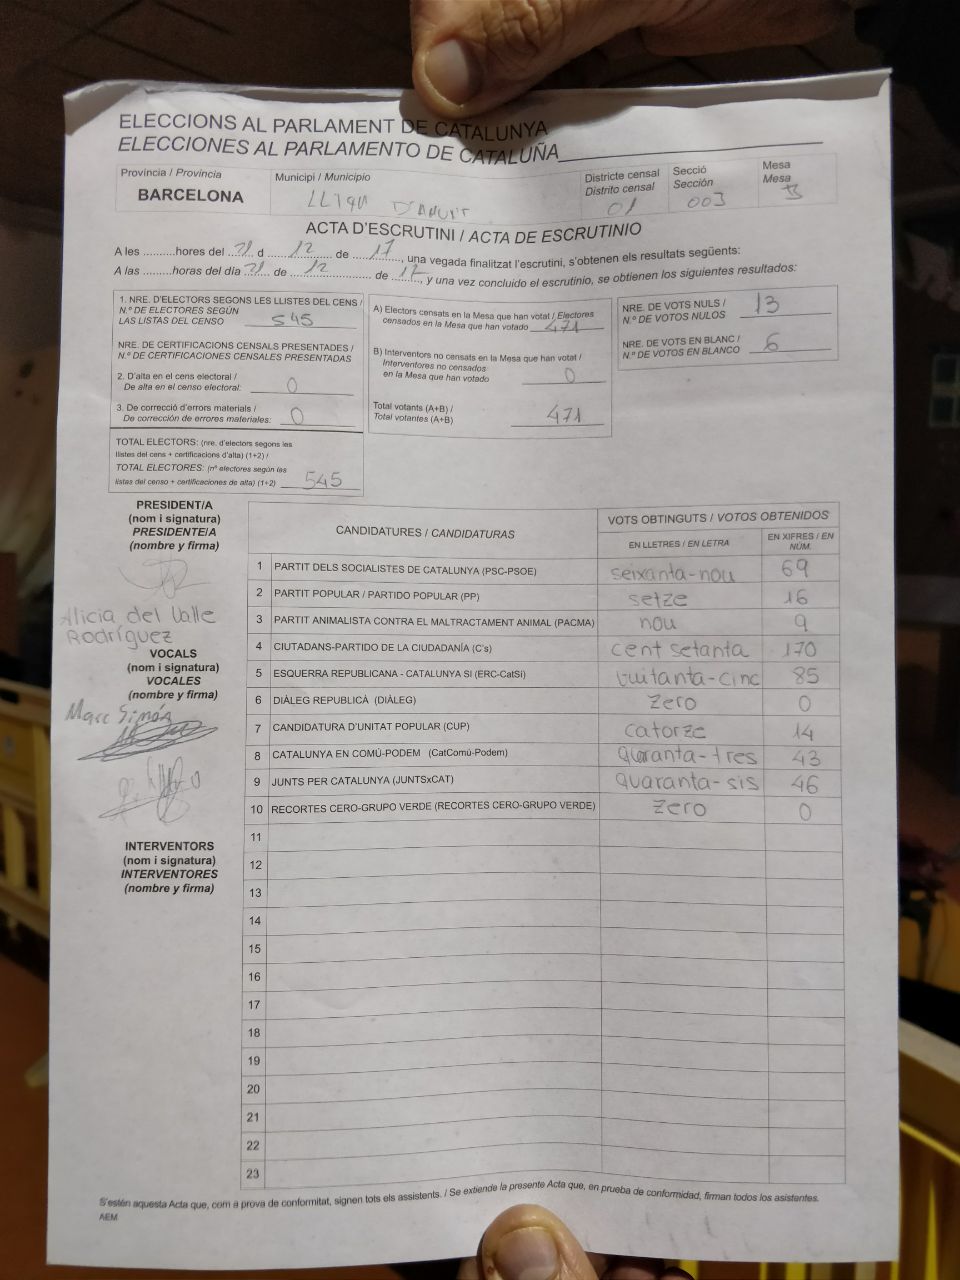 ELECCIONS AL PARLAMENT DE CATALUNYA
ELECCIONES AL PARLAMENTO DE CATALUÑA
Província / Provincia
BARCELONA
Municipi / Municipio
LLIÇÀ D'AMUNT
Districte censal
Distrito censal
01
Secció
Sección
003
Mesa
Mesa
B
ACTA D'ESCRUTINI / ACTA DE ESCRUTINIO
A les ..........hores del 21 d 12 de 17, una vegada finalitzat l'escrutini, s'obtenen els resultats següents:
A las ..........horas del día 21 de 12 de 17, y una vez concluido el escrutinio, se obtienen los siguientes resultados:
1. NRE. D'ELECTORS SEGONS LES LLISTES DEL CENS /
N.º DE ELECTORES SEGÚN
LAS LISTAS DEL CENSO 545
NRE. DE CERTIFICACIONS CENSALS PRESENTADES /
N.º DE CERTIFICACIONES CENSALES PRESENTADAS
2. D'alta en el cens electoral /
De alta en el censo electoral: 0
3. De correcció d'errors materials /
De corrección de errores materiales: 0
TOTAL ELECTORS: (nre. d'electors segons les
llistes del cens + certificacions d'alta) (1+2) /
TOTAL ELECTORES: (nº electores según las
listas del censo + certificaciones de alta) (1+2) 545
A) Electors censats en la Mesa que han votat / Electores
censados en la Mesa que han votado 471
B) Interventors no censats en la Mesa que han votat /
Interventores no censados
en la Mesa que han votado 0
Total votants (A+B) /
Total votantes (A+B) 471
NRE. DE VOTS NULS /
N.º DE VOTOS NULOS 13
NRE. DE VOTS EN BLANC /
N.º DE VOTOS EN BLANCO 6
PRESIDENT/A
(nom i signatura)
PRESIDENTE/A
(nombre y firma)
Alicia del Valle
Rodríguez
VOCALS
(nom i signatura)
VOCALES
(nombre y firma)
Marc Simón
INTERVENTORS
(nom i signatura)
INTERVENTORES
(nombre y firma)
CANDIDATURES / CANDIDATURAS
VOTS OBTINGUTS / VOTOS OBTENIDOS
EN LLETRES / EN LETRA
EN XIFRES / EN NÚM.
1 PARTIT DELS SOCIALISTES DE CATALUNYA (PSC-PSOE) seixanta-nou 69
2 PARTIT POPULAR / PARTIDO POPULAR (PP) setze 16
3 PARTIT ANIMALISTA CONTRA EL MALTRACTAMENT ANIMAL (PACMA) nou 9
4 CIUTADANS-PARTIDO DE LA CIUDADANÍA (C's) cent setanta 170
5 ESQUERRA REPUBLICANA - CATALUNYA SI (ERC-CatSi) vuitanta-cinc 85
6 DIÀLEG REPUBLICÀ (DIÀLEG) zero 0
7 CANDIDATURA D'UNITAT POPULAR (CUP) catorze 14
8 CATALUNYA EN COMÚ-PODEM (CatComú-Podem) quaranta-tres 43
9 JUNTS PER CATALUNYA (JUNTSxCAT) quaranta-sis 46
10 RECORTES CERO-GRUPO VERDE (RECORTES CERO-GRUPO VERDE) zero 0
11
12
13
14
15
16
17
18
19
20
21
22
23
S'estén aquesta Acta que, com a prova de conformitat, signen tots els assistents. / Se extiende la presente Acta que, en prueba de conformidad, firman todos los asistentes.
AEM